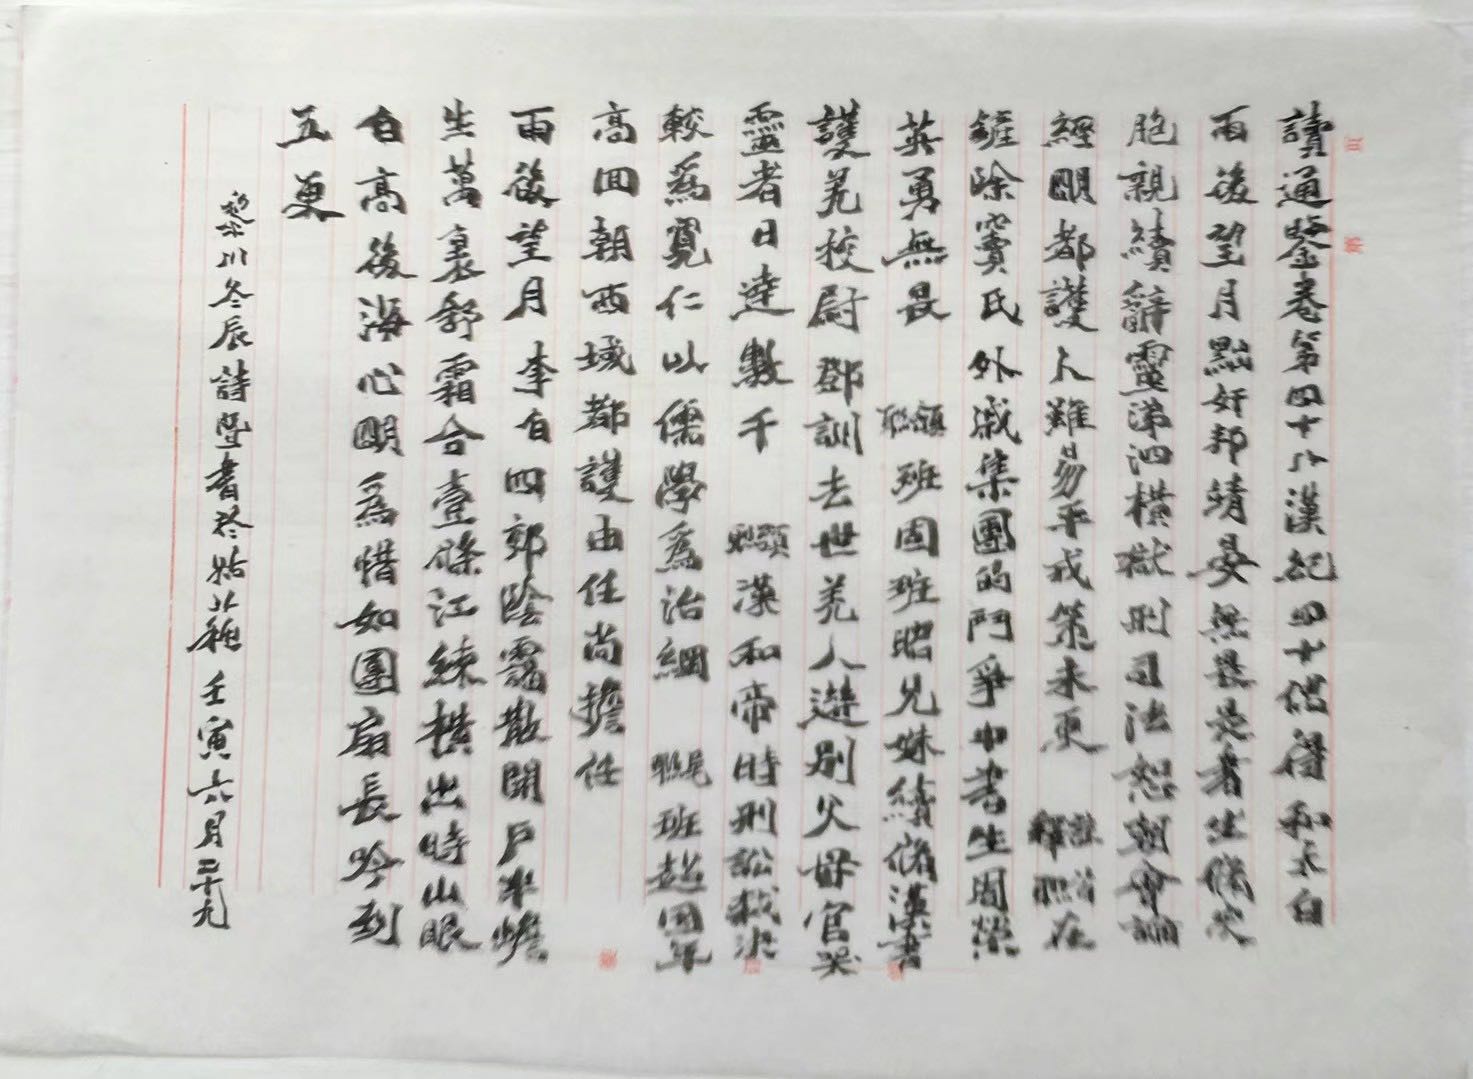 讀通鑒卷第四十八漢紀四十偕得和太白
雨後望月點奸邦靖晏無畏是者生俻父
胞親續辭靈涕泗橫獄刑司法恕朝會論
經明都護人難易平戎策未更 註釋 首聯在
鏟除竇氏外戚集團的鬥爭中書生周榮
英勇無畏 頷聯班固班昭兄妹續俻漢書
護羌校尉鄧訓去世羌人遊別父母官哭
靈者日達數千 頸聯漢和帝時刑訟裁決
較為寬仁以儒學為治綱 尾聯班超因年
高回朝西域都護由任尚擔任
雨後望月 李白 四郊陰靄散開戶半蟾
生萬裏舒霜合壹條江練橫出時山眼
白高後海心明為惜如團扇長吟到
五更
黎川冬辰詩暨書於姑蘇壬寅六月二十九